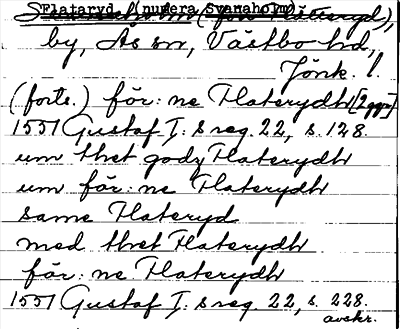 Flataryd (numera Svanaholm)
Svanaholm (förr Flateryd),
by, Ås sn, Västbo hd,
Jönk. l.
(forts.) för: ne Flaterydh [2 ggr]
1551 Gustaf I: s reg. 22, s. 128.
um thet godz Flaterydh
um för: ne Flaterydh
same Flateryd
med thet Flaterydh
för: ne Flaterydh
1551 Gustaf I: s reg. 22, s. 228.
avskr.